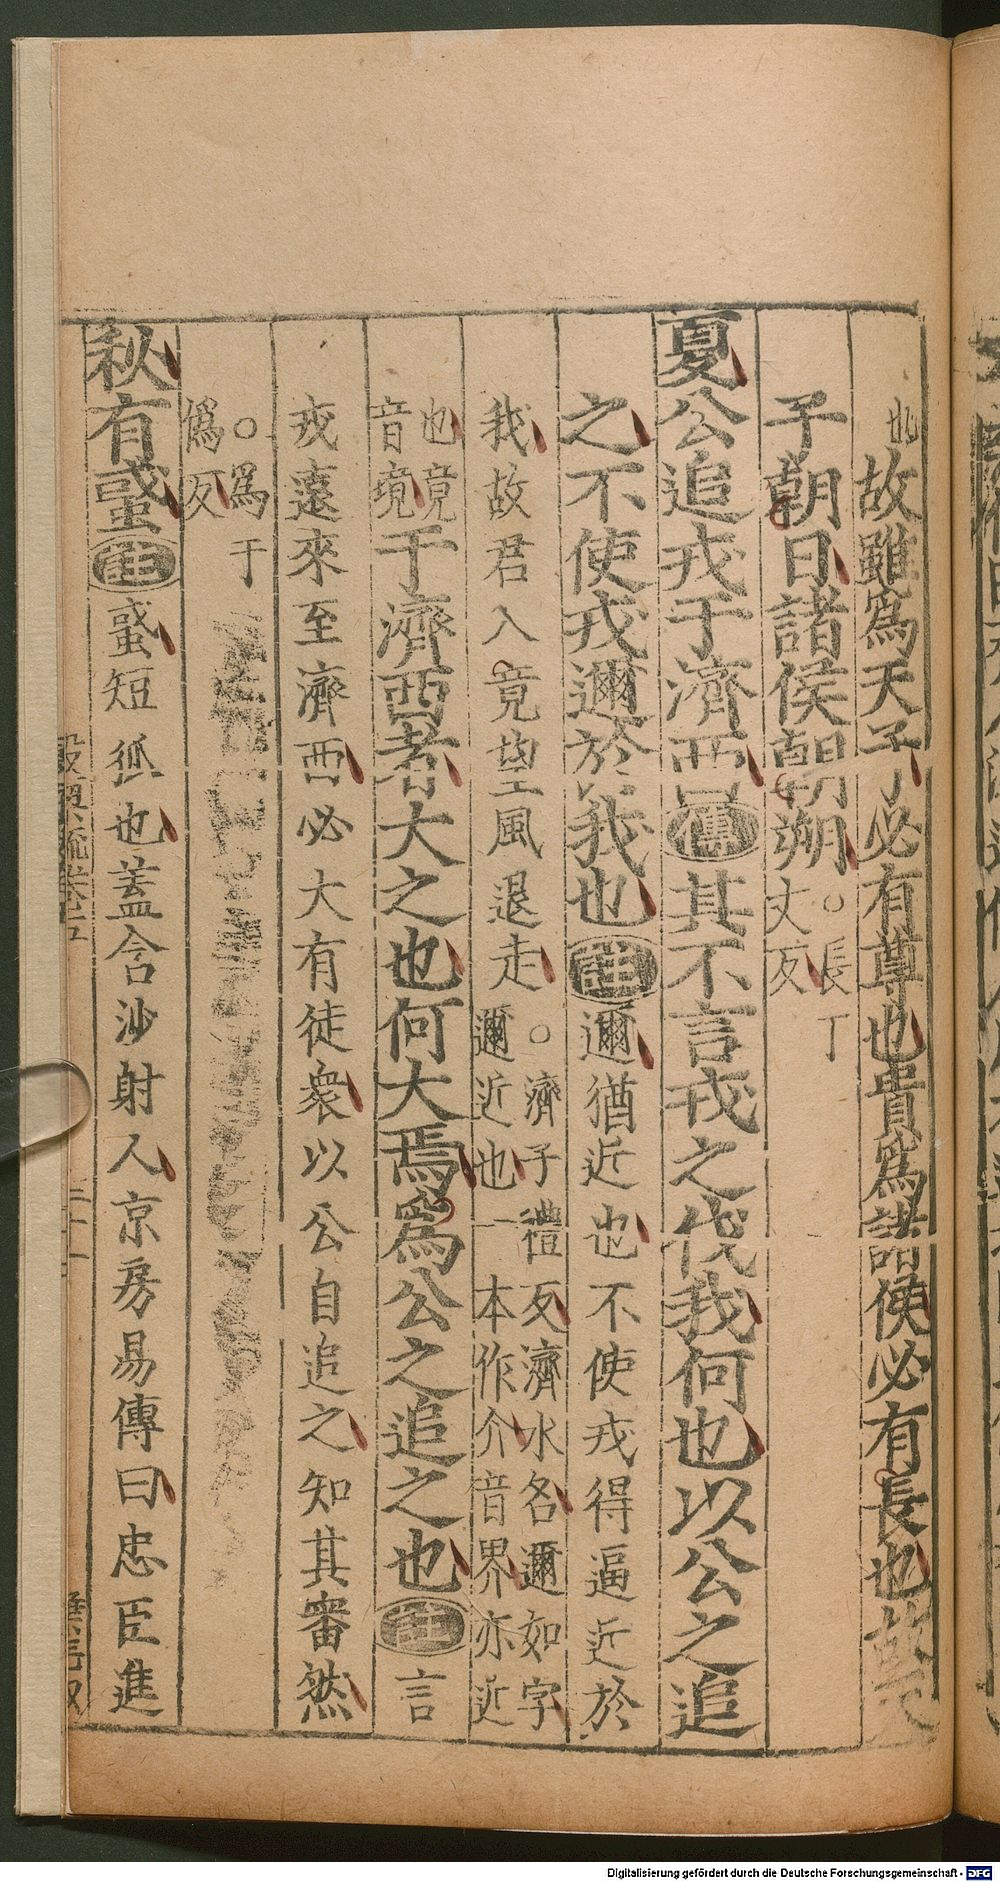 此故雖爲天子必有尊也貴爲諸侯必有長也故天
子朝日諸侯朝朔○長丁丈反
夏公追戎于濟西傳其不言戎之伐我何也以公之追
之不使戎邇於我也註邇猶近也不使戎得逼近於
我故君入竟望風退走○濟子禮反濟水名邇如字邇近也一本作介音界亦近
也竟音境于濟西者大之也何大焉爲公之追之也註言
戎遠來至濟西必大有徒衆以公自追之知其審然
○爲于僞反
秋有䘆註䘆短狐也蓋含沙射人京房易傳曰忠臣進
Digitalisierung gefördert durch die Deutsche Forschungsgemeinschaft - DFG